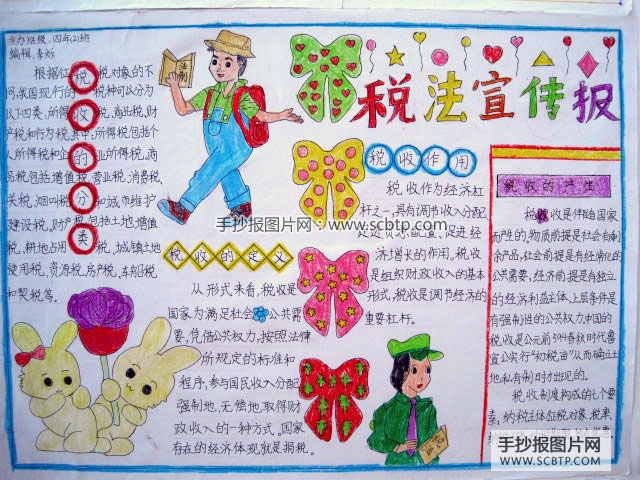 主办班级:四年(2)班
编辑:李
法制
税法宣传报
税收的分类
根据征税对象的不
同,我国现行的税种可以分为
以下四类:所得税,商品税,财
产税和行为税,其中:所得税包括个
人所得税和企业所得税,商
品税包括增值税,营业税,消费税
关税,烟叶税和城市维护
建设税,财产税包括土地增值
税,耕地占用税,城镇土地
使用税,资源税,房产税,车船税
和契税等。
税收作用
税收作为经济杠
杆之一,具有调节收入分配
促进资源配置、促进经
济增长的作用。税收
是组织财政收入的基本
形式,税收是调节经济的
重要杠杆。
税收的定义
从形式来看,税收是
国家为满足社会公共需
要,凭借公共权力,按照法律
所规定的标准和
程序,参与国民收入分配
强制地、无偿地,取得财
政收入的一种方式。国家
存在的经济体现就是捐税。
税收的产生
税收是伴随国家
而产生的。物质前提是社会有剩
余产品,社会前提是有经常化的
公共需要,经济前提是有独立
的经济利益主体,上层条件是
有强制性的公共权力。中国的
税收是公元前594春秋时代鲁
宣公实行"初税亩"从而确立
地私有制时才出现的。
税收制度构成的七个要
素:纳税主体、征税对象、税率、
手抄报图片网:www.scbtp.com
手抄报图片网
WWW.SCBTP.COM